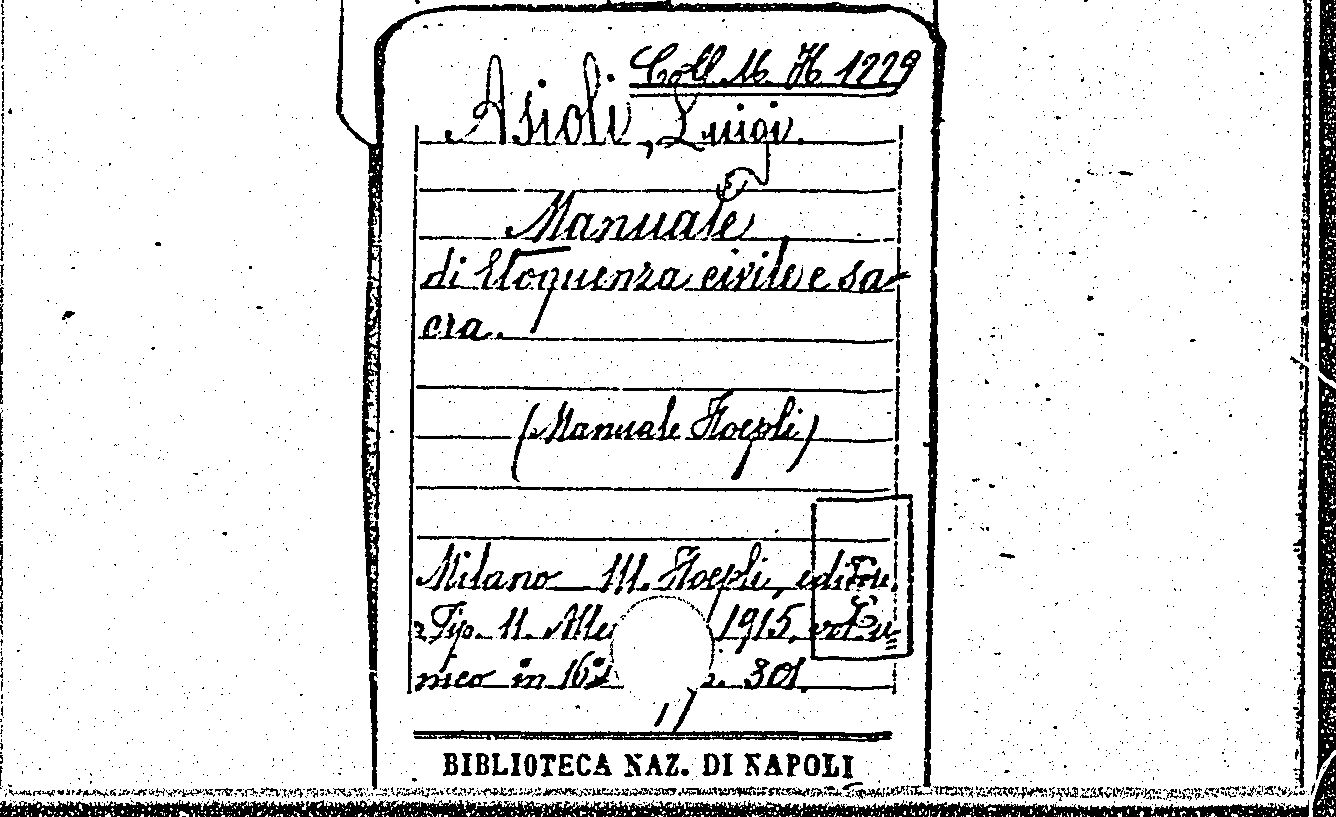 Coll. M. H. 1229
Asioli, Luigi.
Manuale
di Eloquenza civile e sa-
cra.
(Manuale Hoepli)
Milano U. Hoepli, editore
Tip. U. Alle 1915, vol. u
nico in 16° p. 301.
BIBLIOTECA NAZ. DI NAPOLI